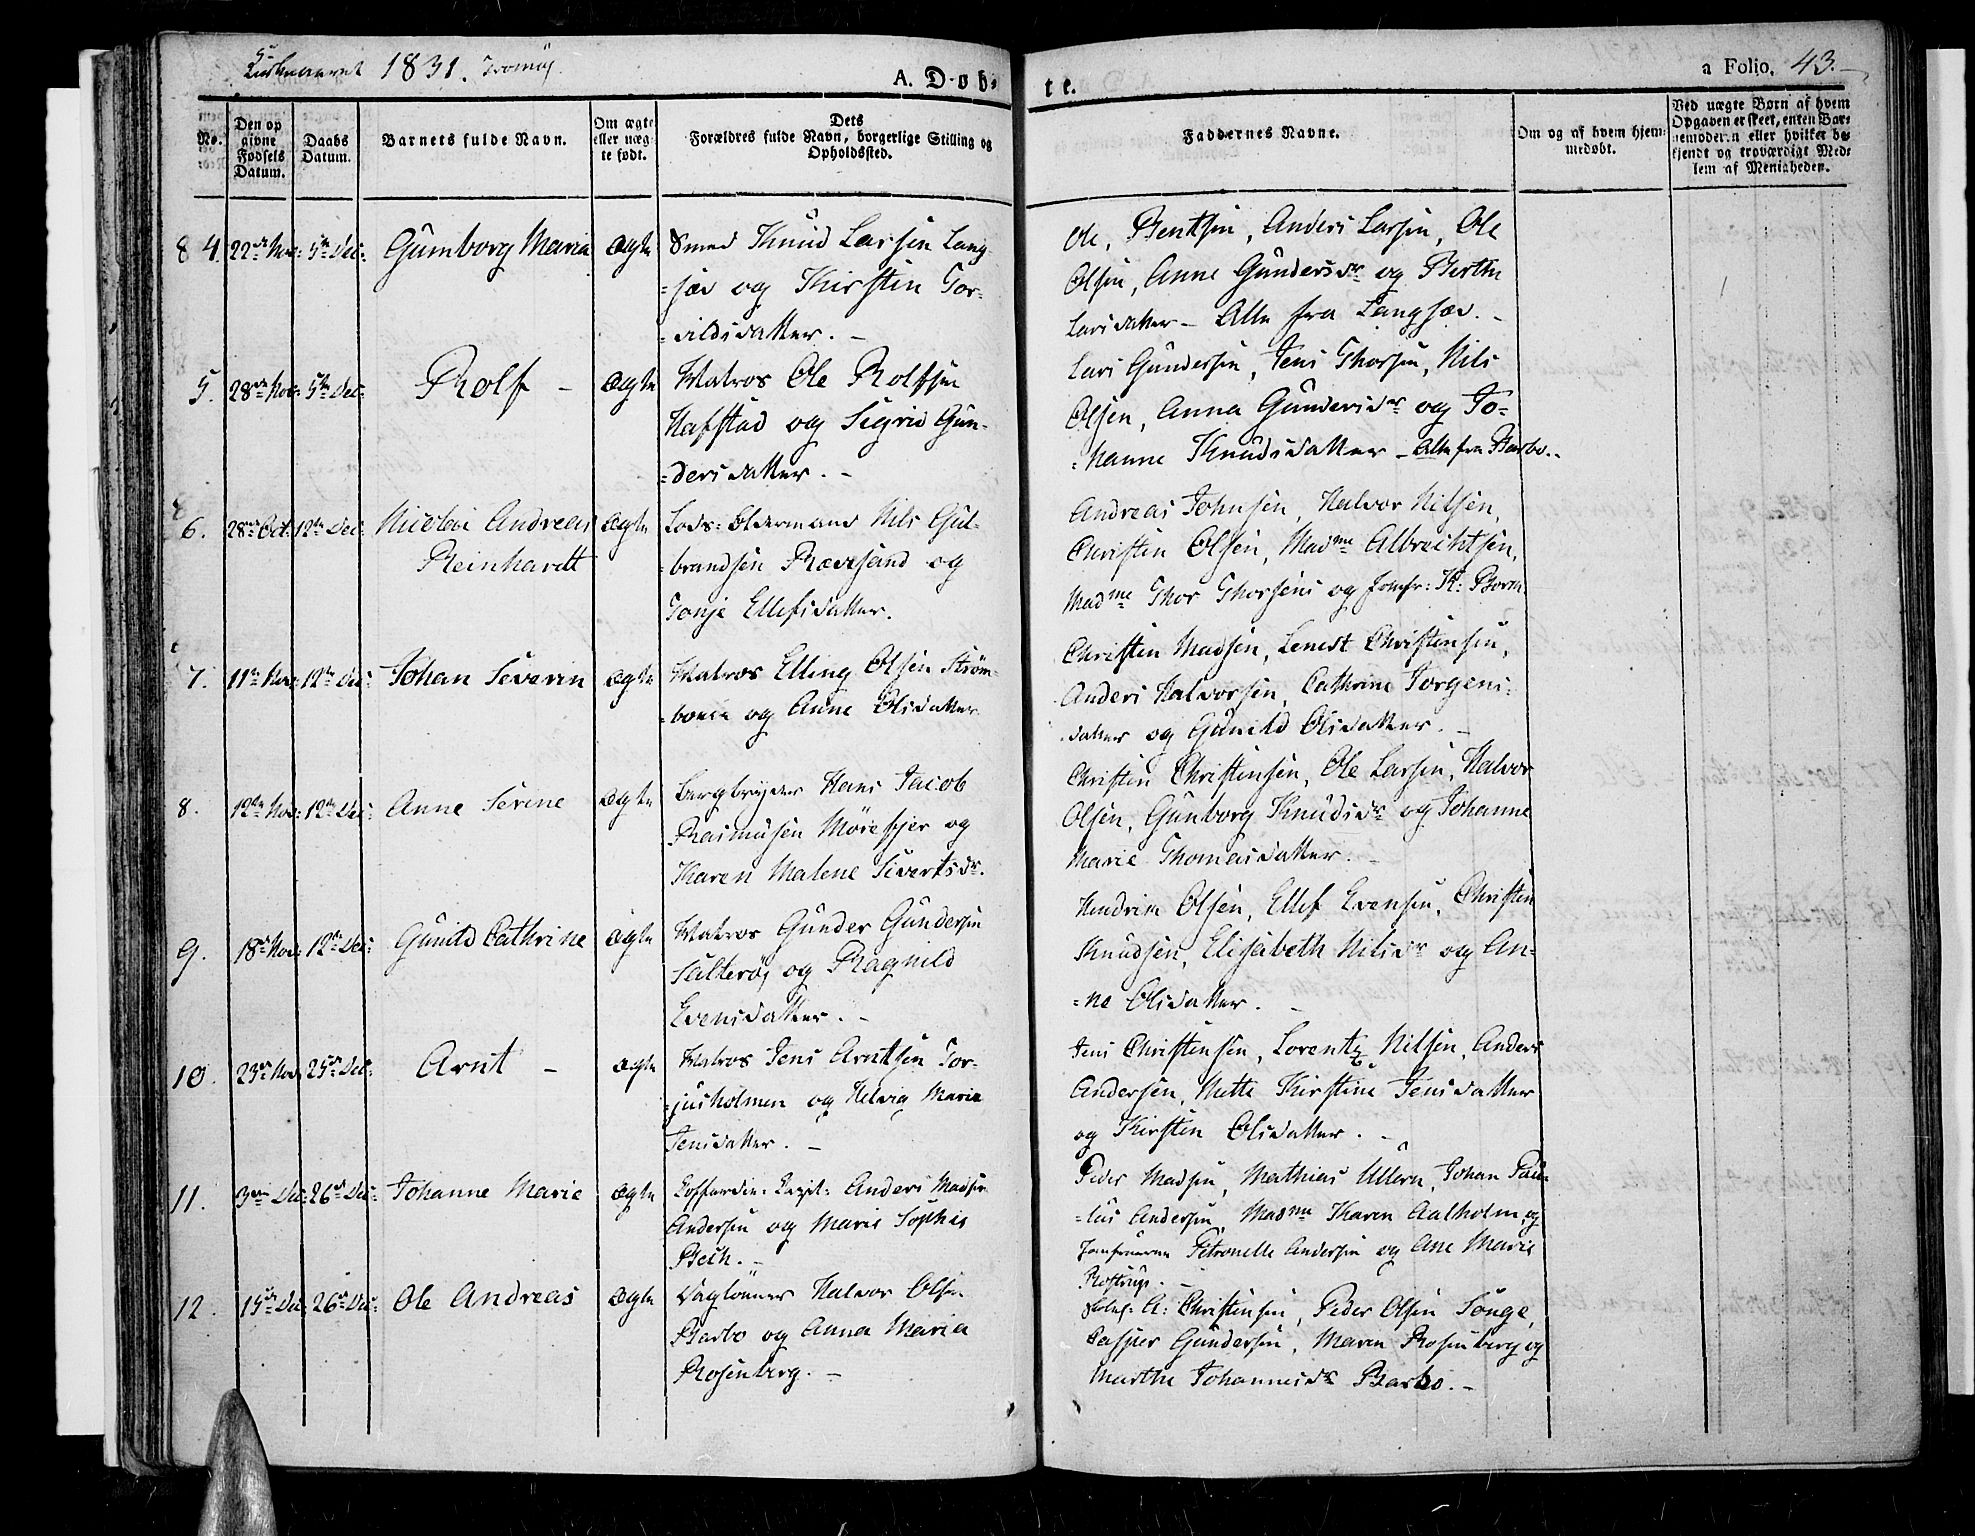 Kirkeaaret 1831. Tromøj.
A. Døb-
te.
a Folio. 43.
No.
Den op
givne
Fødsels
Datum.
Daabs
Datum.
Barnets fulde Navn.
Om ægte
eller uæg-
te født.
Dets
Forældres fulde Navn, borgerlige Stilling og
Opholdssted.
Faddernes Navne.
Om og af hvem hjem-
medøbt.
Ved uægte Børn af hvem
Opgaven er skeet, enten Bar-
nemoderen eller hvilket be-
kjendt og troværdigt Med-
lem af Menigheden.
4. 22de Nov: 5te Dec: Gumborg Maria ægte
Smed Knud Larsen Lang-
=sæv og Kirstin Tor-
=vildsdatter. –
Ole Bentsen, Anders Larsen, Ole
Olsen, Anne Gundersdr og Berthe
Larsdatter – Alle fra Langsæv. –
5. 28de Nov: 5te Dec: Rolf – ægte
Matros Ole Rolfsen
Hafstad og Sigrid Gun-
=dersdatter. –
Lars Gundersen, Jens Thorsen, Nils
Olsen, Anna Gundersdr og Jo-
=hanne Knudsdatter – Alle fra Barbo. –
6. 28de Oct: 12te Dec: Nicolai Andreas
Reinhardt
ægte
Lods-Oldermand Nils Gul-
=brandsen Revesand og
Tonje Ellefsdatter.
Andreas Johnsen, Halvor Nilsen,
Christen Olsen, Madme Albrechtsen,
Madme Thor Thorsens og Jomfr: K: Born
7. 11te Nov: 12te Dec: Johan Severin ægte
Matros Elling Olsen Strøm-
=boene og Anne Olsdatter
Christen Madsen, Christensen,
Anders Halvorsen, Cathrine Jørgens-
datter og Gunild Olsdatter. –
8. 12te Nov: 12te Dec: Anne Severine ægte
Hans Jacob
Rasmusen Mørefjer og
Karen Malene Sivertsdr.
Christen Christensen, Ole Larsen, Halvor
Olsen, Gunborg Knudsdr og Johanne
Marie Thomasdatter. –
9. 18de Nov: 12te Dec: Gunild Cathrine ægte
Matros Gunder Gundersen
Salterøj og Ragnild
Evensdatter. –
Hendrik Olsen, Ellef Evensen, Christen
Knudsen, Elisabeth Nilsdr og An-
=ne Olsdatter. –
10. 23de Nov: 25de Dec: Arnt – ægte
Matros Jens Arntsen Tor-
=jusholmen og Helvig Marie
Jensdatter. –
Jens Christensen, Lorentz Nilsen, Anders
Andersen, Mette Kirstine Jensdatter
og Kirsten Olsdatter. –
11. 3die Dec: 26de Dec: Johanne Marie ægte
Koffardie-Capit: Anders Madsen
Andersen og Maria Sophie
Beck. –
Peder Madsen, Mathias Ullern, Johan Pau-
=lus Andersen, Madme Karen Aalholm, og
Jomfruerne Petronelle Andersen og Ane Marie
Rostrup. –
12. 15de Dec: 26de Dec: Ole Andreas ægte
Daglønner Halvor Olsen
Barbo og Anna Maria
Rosenberg. –
A: Christensen, Peder Olsen Songe,
Casper Gundersen, Maren Rosenberg og
Marthe Johannesdr Barbo. –